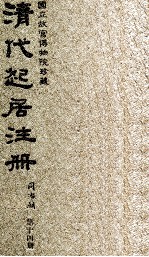 國立故宮博物院珍藏
清代起居注冊
同治朝 第十四冊